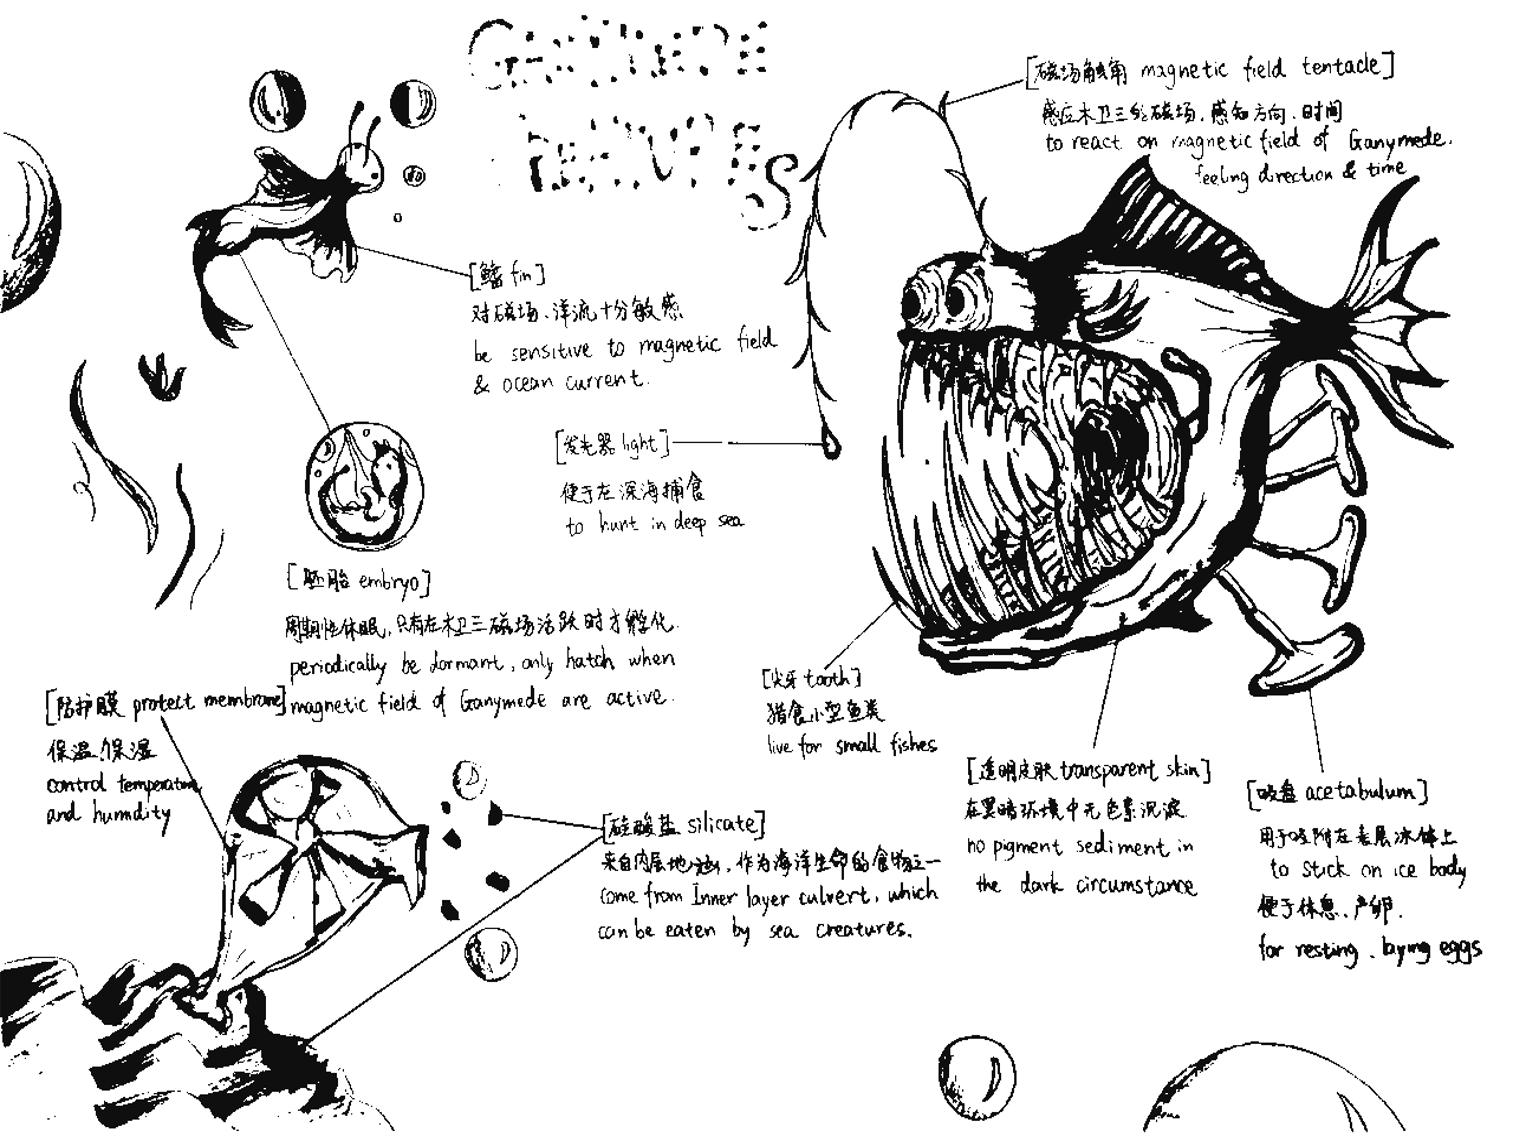 GANYMEDE
NATIVES
[磁场触角 magnetic field tentacle]
感应木卫三的磁场，感知方向、时间
to react on magnetic field of Ganymede.
feeling direction & time
[鳍 fin]
对磁场、洋流十分敏感
be sensitive to magnetic field
& ocean current.
[发光器 light]
便于在深海捕食
to hunt in deep sea
[胚胎 embryo]
周期性休眠，只有在木卫三磁场活跃时才孵化.
periodically be dormant, only hatch when
magnetic field of Ganymede are active.
[防护膜 protect membrane]
保温、保湿
control temperature
and humidity
[硅酸盐 silicate]
来自内层地，作为海洋生命的食物之一
come from Inner layer culvert, which
can be eaten by sea creatures.
[尖牙 tooth]
猎食小型鱼类
live for small fishes
[透明皮肤 transparent skin]
在黑暗环境中无色素沉淀
no pigment sediment in
the dark circumstance
[吸盘 acetabulum]
用于吸附在表层冰体上
to stick on ice body
便于休息、产卵.
for resting、laying eggs